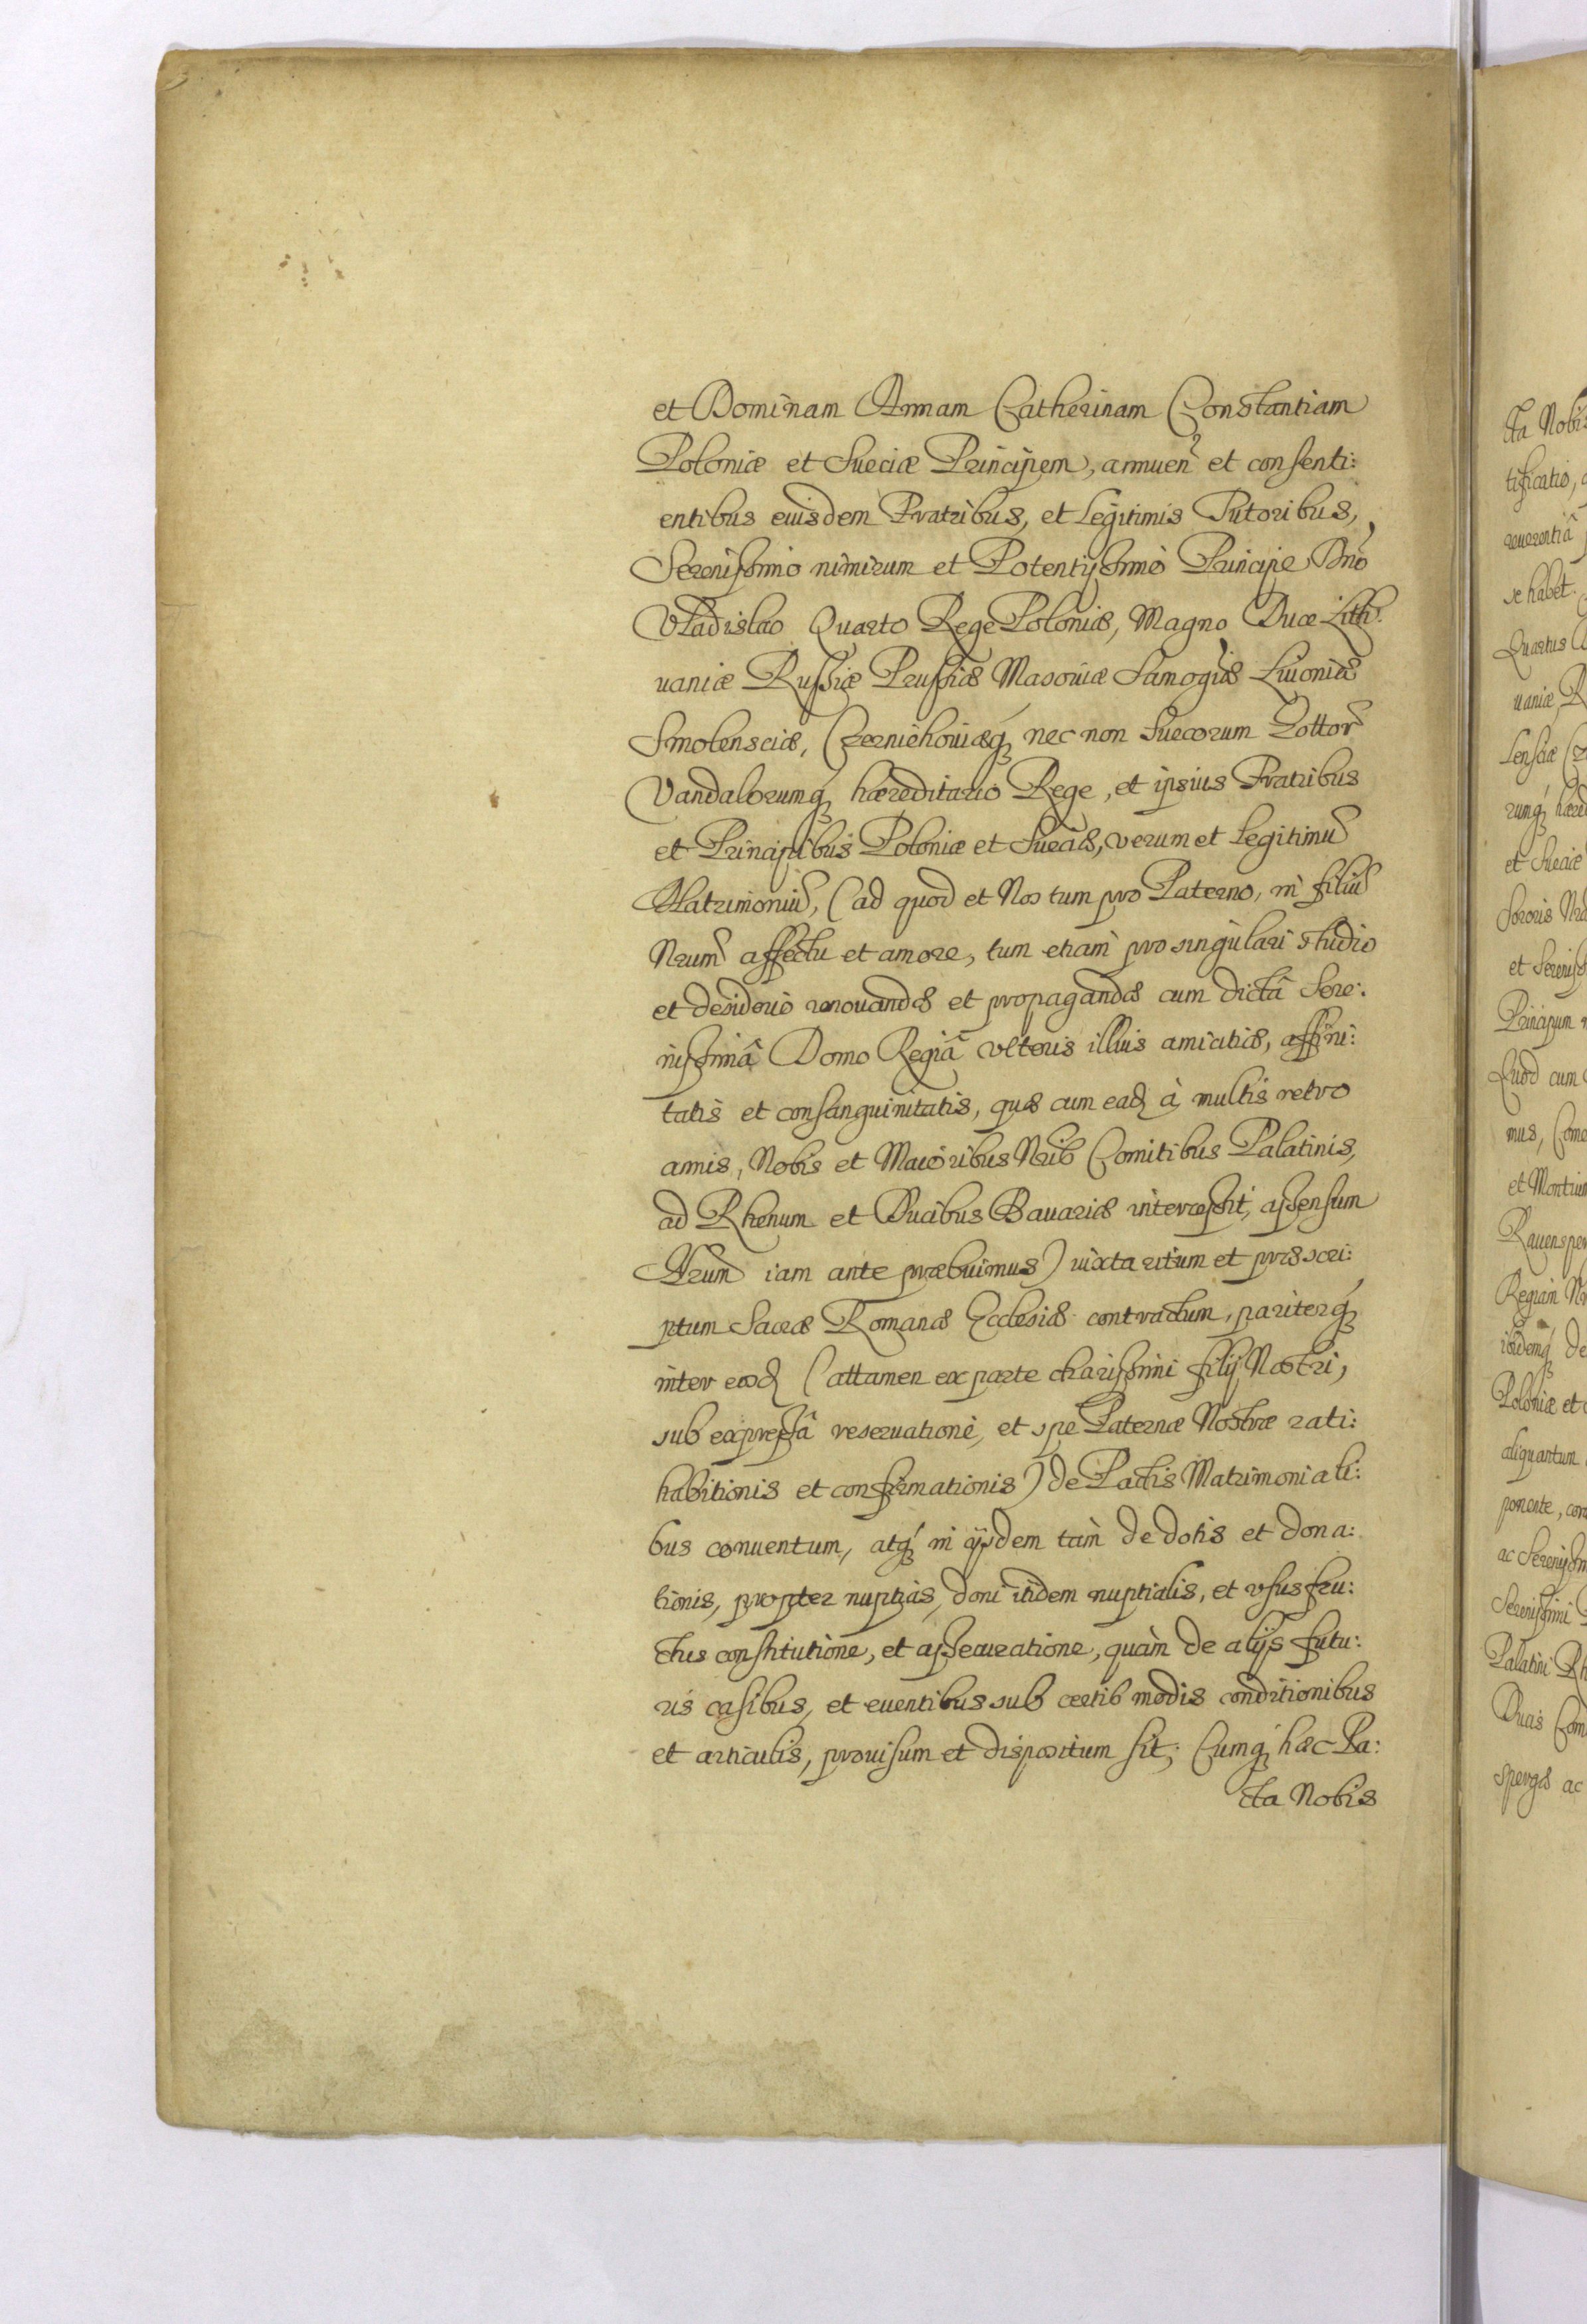 et Dominam Annam Catherinam Constantiam
Poloniæ et Sueciæ Principem, annuen̄ et consenti:
entibus eiusdem Fratribus, et Legitimis Tutoribus,
Serenissimo nimirum et Potentissimo Principe Dn̄o
Vladislao Quarto Rege Poloniæ, Magno Duce Lith:
uaniæ Russiæ Prussiæ Masouiæ Samogiæ Liuoniæ
Smolensciæ, Czerniehouiæq́ nec non Suecorum Gottor̄
Vandalorumq́ hæreditario Rege, et ipsius Fratribus
et Principibus Poloniæ et Sueciæ, verum et Legitimū
Matrimoniū, (ad quod et Nos tum pro Paterno, in filiū
Nrum̄ affectu et amore, tum etiam pro singulari studio
et desiderio renouandæ et propagandæ cum dictâ Sere:
nissimâ Domo Regiâ veteris illius amicitiæ, affini:
tatis et consanguinitatis, quæ cum ead̄ à multis retro
annis, Nobis et Maioribus Nrib̄ Comitibus Palatinis,
ad Rhenum et Ducibus Bauariæ intercessit, assensum
Nrum̄ iam ante præbuimus) iuxta ritum et præscri:
ptum Sacræ Romanæ Ecclesiæ contractum, pariterq́
inter eosd̄ (attamen ex parte charissimi filij Nostri,
sub expressâ reseruatione, et spe Paternæ Nostræ rati:
habitionis et confirmationis) de Pactis Matrimoniali:
bus conuentum, atq́ in ijsdem tam de dotis et dona:
tionis, propter nuptias, doni itidem nuptialis, et vsusfru:
ctus constitutione, et assecuratione, quàm de alijs futu:
ris casibus, et euentibus sub certis modis conditionibus
et articulis, prouisum et dispositum sit; Cumq́ hæc Pa:
cta Nobis
cta Nobis
tificatio,
reuerentiâ
se habet.
Quartus
uaniæ, R
lensciæ
rumq́ hæred
et Sueciæ
Sororis
et Sereniss
Principum
Quod cum
mus, Com
et Montium
Rauensper
Regiam
ibidemq́ de
Poloniæ et
aliquantum
ponente, con
ac Sereniss
Serenissimi
Palatini Rh
Ducis Com
spergæ ac